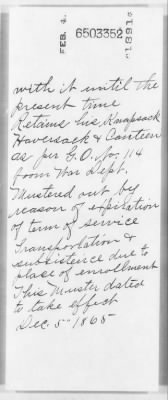 FEB. 4.
6503352
1891
with it until the
present time
Retains his Knapsack
Haversack & Canteen
as per G.O. No. 114
from War Dept.
Mustered out by
reason of expiration
of term of service
Transportation &
subsistence due to
place of enrollment
This Muster dated
to take effect
Dec. 5" 1865